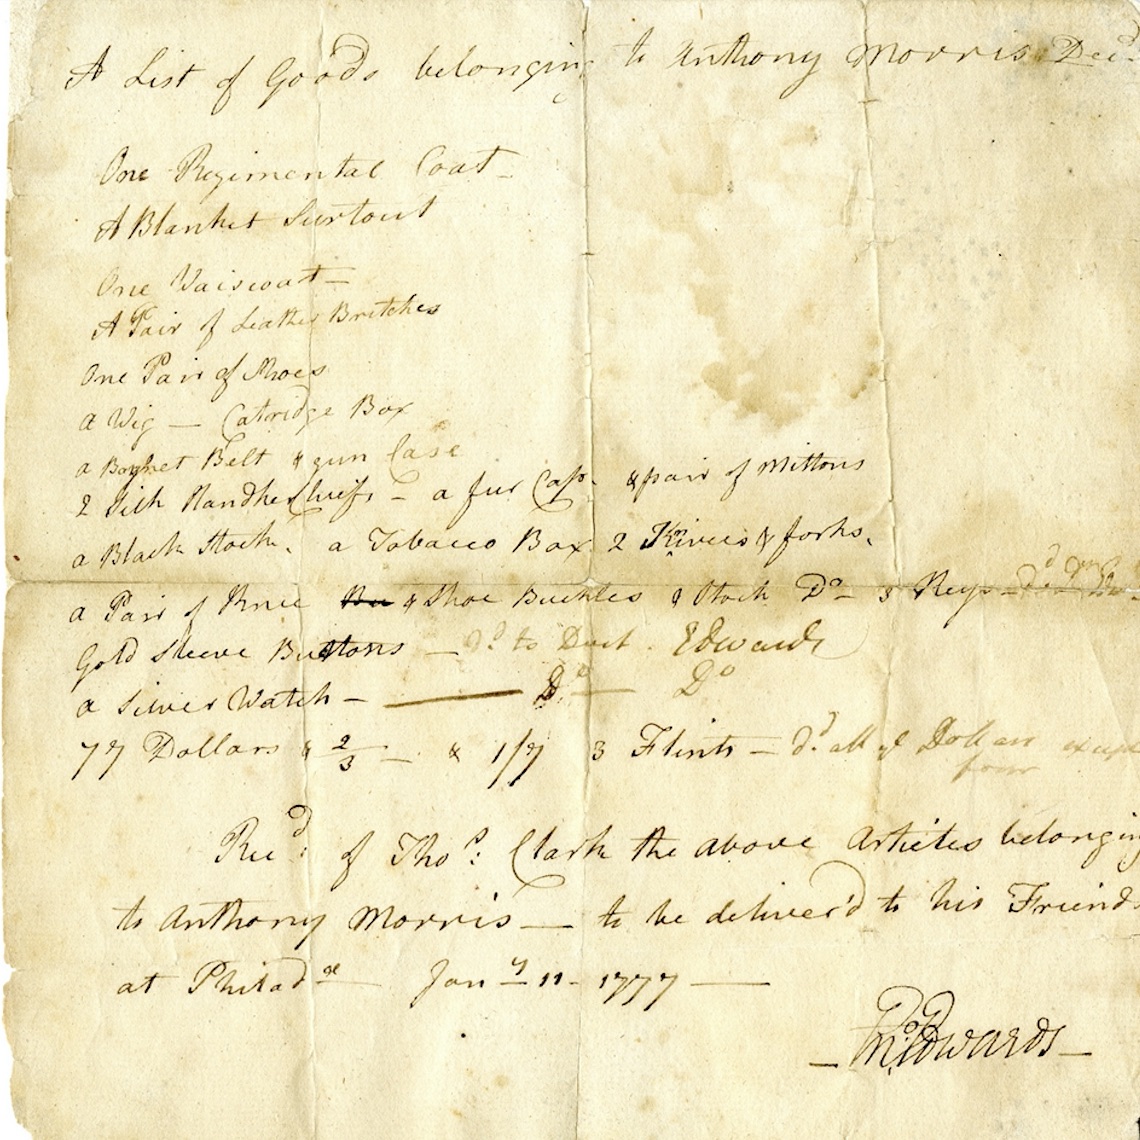 A List of Goods belonging to Anthony Morris Decd.
One Regimental Coat —
A Blanket Surtout
One Vaiscoat —
A Pair of Leather Britches
One Pair of Shoes
a Wig — Catridge Box
a Baynet Belt & gun Case
2 Silk Handkerchuifs – a fur Cap. & pair of Mittons
a Black Stock. a Tobacco Box 2 Knives & forks.
a Pair of Knee & Shoe Buckles & Stock Do – 3 Keys –
Gold Sleeve Buttons — Dd to Doct. Edwards
a Silver Watch — Do — Do
77 Dollars & 2/3 — & 1/7 3 Flints — Dd all ye Dollars except
four
Recd: of Thos: Clark the above Articles belonging
to Anthony Morris — to be deliver'd to his Friends
at Philade Jany 11 – 1777 —
— Edwards —